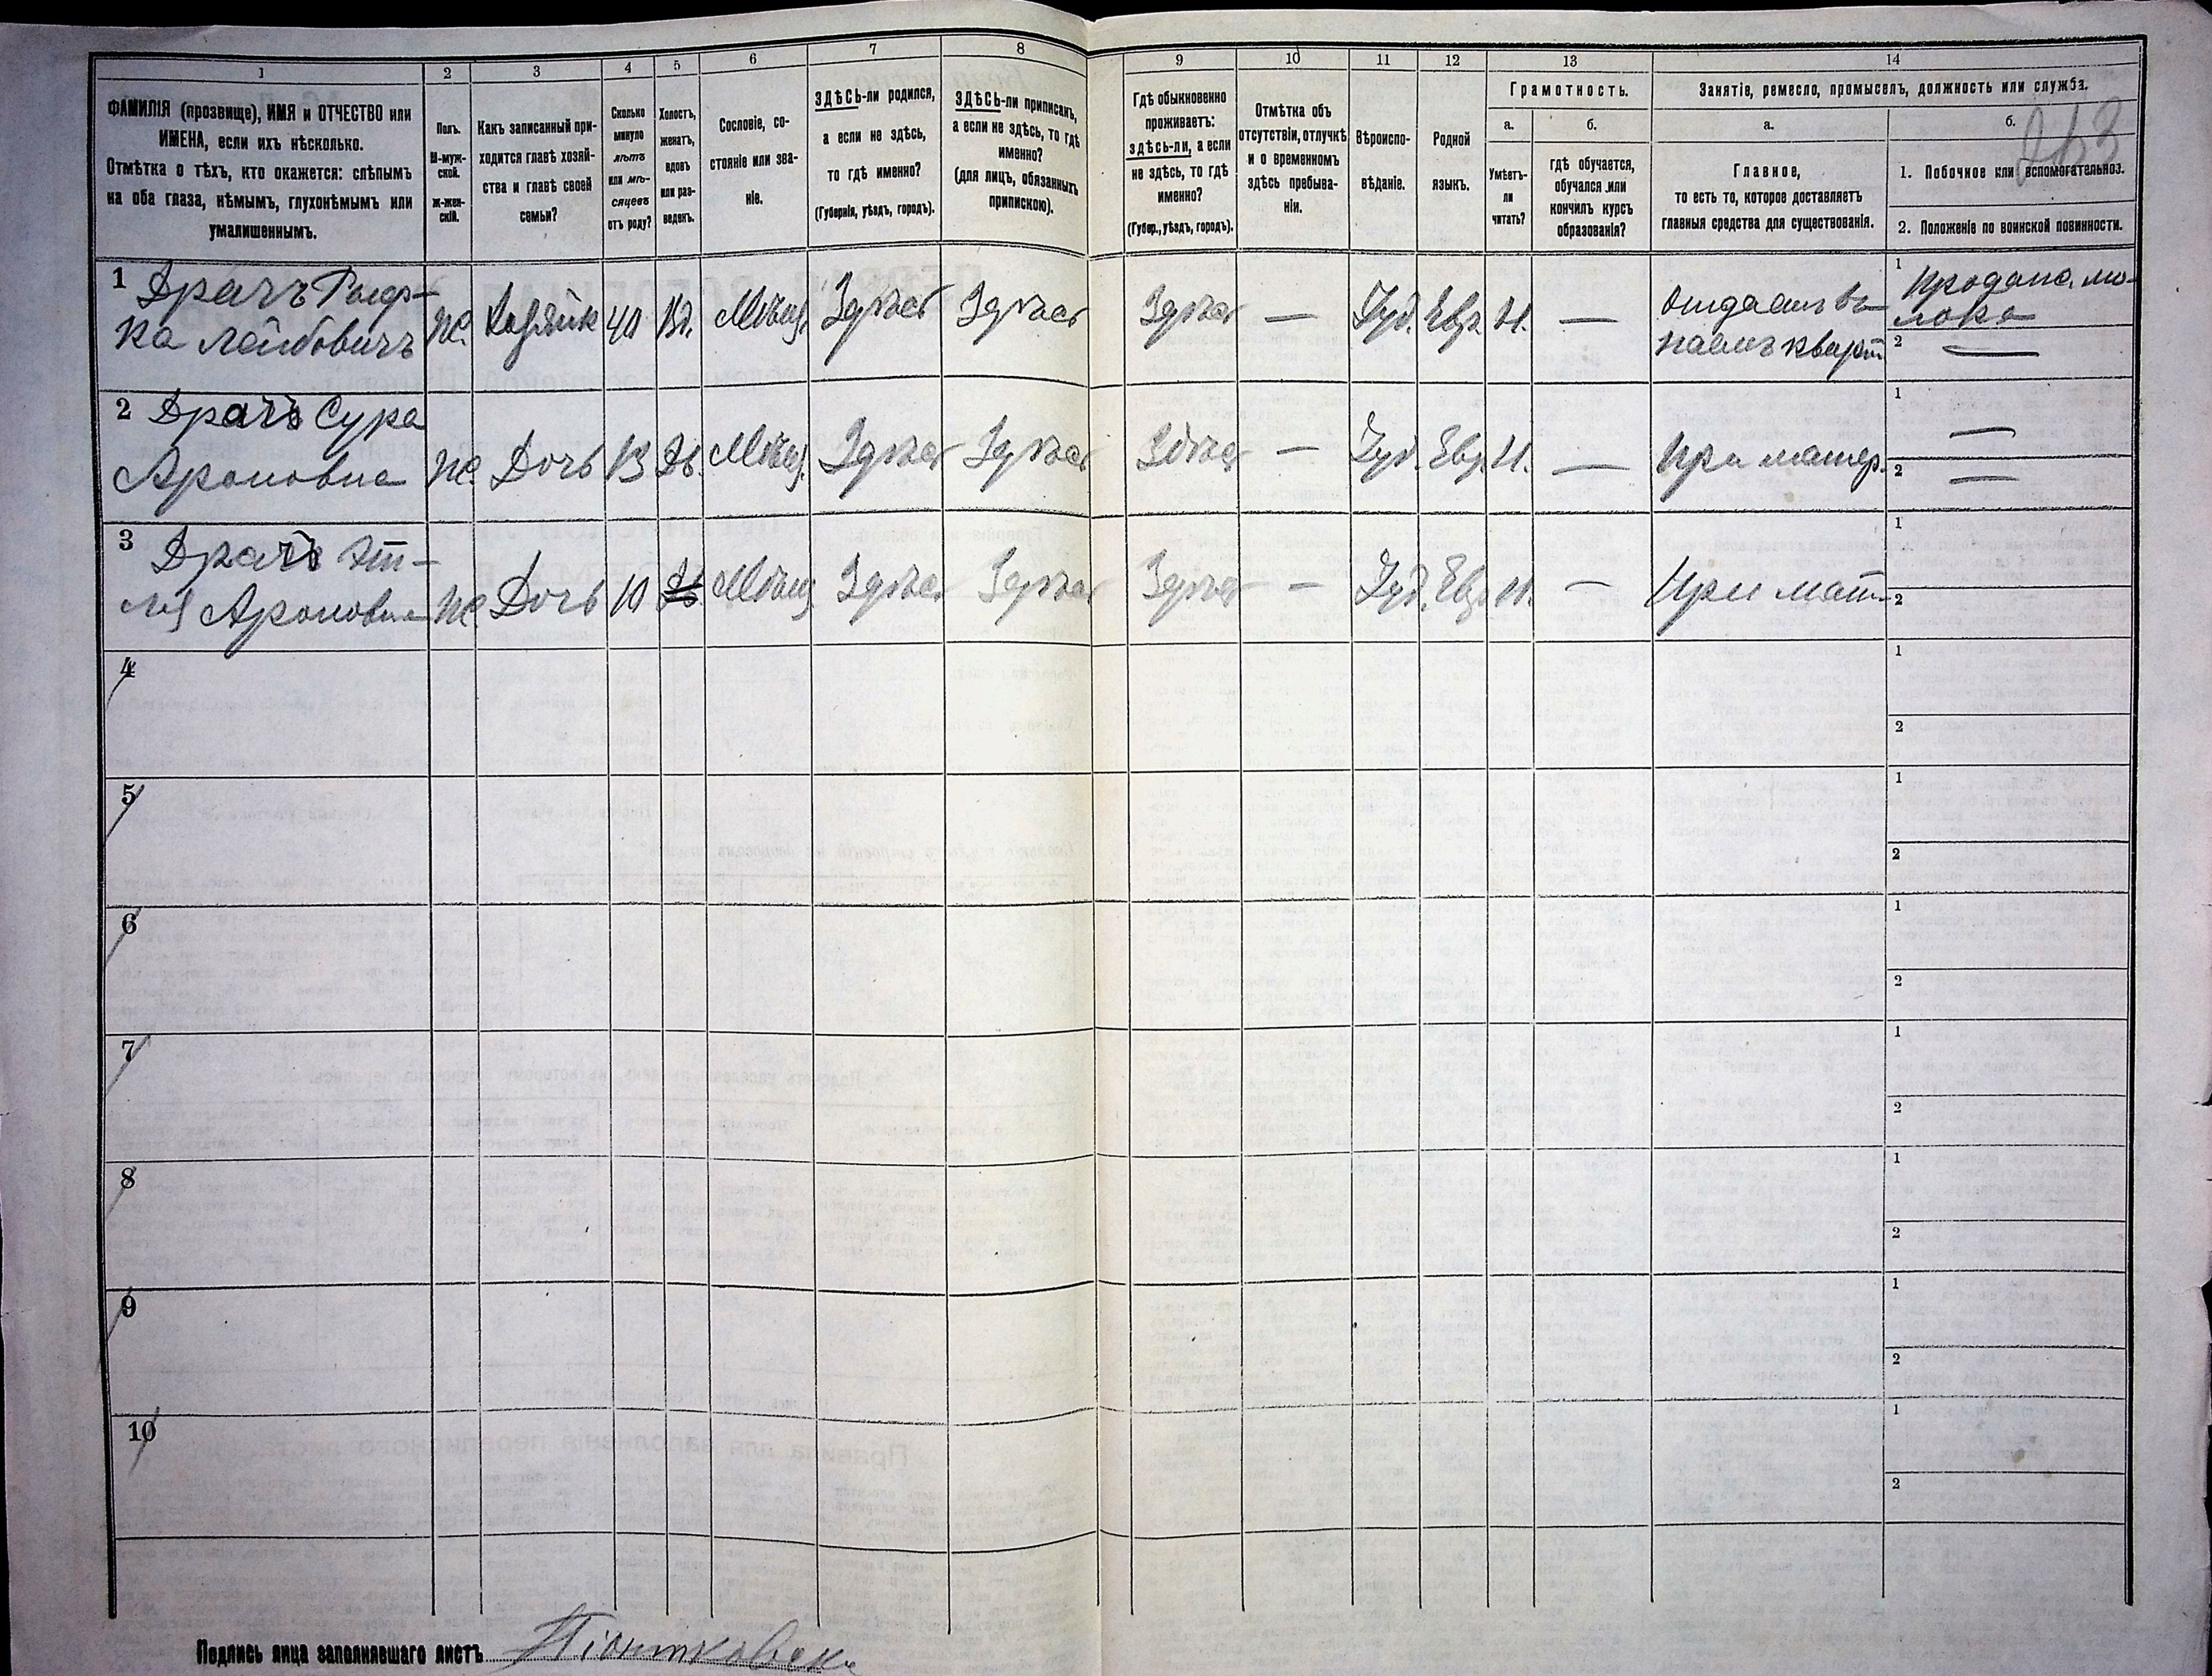 1 2 3 4 5 6 7 8 9 10 11 12 13 14
ФАМИЛІЯ (прозвище), ИМЯ и ОТЧЕСТВО или
ИМЕНА, если ихъ нѣсколько.
Отмѣтка о тѣхъ, кто окажется: слѣпымъ
на оба глаза, нѣмымъ, глухонѣмымъ или
умалишеннымъ.
Полъ.
М-муж-
ской.
Ж-жен-
скій.
Какъ записанный при-
ходится главѣ хозяй-
ства и главѣ своей
семьи?
Сколько
минуло
лѣтъ
или мѣ-
сяцевъ
отъ роду?
Холостъ,
женатъ,
вдовъ
или раз-
веденъ.
Сословіе, со-
стояніе или зва-
ніе.
ЗДѢСЬ-ли родился,
а если не здѣсь,
то гдѣ именно?
(Губернія, уѣздъ, городъ).
ЗДѢСЬ-ли приписанъ,
а если не здѣсь, то гдѣ
именно?
(для лицъ, обязанныхъ
припискою).
Гдѣ обыкновенно
проживаетъ:
здѣсь-ли, а если
не здѣсь, то гдѣ
именно?
(Губер., уѣздъ, городъ).
Отмѣтка объ
отсутствіи, отлучкѣ
и о временномъ
здѣсь пребыва-
ніи.
Вѣроиспо-
вѣданіе.
Родной
языкъ.
Грамотность.
а.
Умѣетъ-
ли
читать?
б.
гдѣ обучается,
обучался или
кончилъ курсъ
образованія?
Занятіе, ремесло, промыселъ, должность или служба.
а.
Главное,
то есть то, которое доставляетъ
главныя средства для существованія.
б.
263
1. Побочное или вспомогательное.
2. Положеніе по воинской повинности.
1 Драчъ
ка Лейбовичъ
Ж. Хозяйк 40 Вд. Мѣщ. Здѣсь Здѣсь Здѣсь — Іуд. Евр. Н. —
Отдаетъ въ
наемъ кварт
1 Продажа мо-
лока
2 —
2 Драчъ Сура
Ароновна
Ж. Дочь 13 Дѣ. Мѣщ. Здѣсь Здѣсь Здѣсь — Іуд. Евр. Н. — При матер.
1 —
2 —
3 Драчъ Эт-
ля Ароновна
Ж Дочь 10 Мѣщ Здѣсь Здѣсь Здѣсь — Іуд. Евр. Н. — При мат
1
2
4
1
2
5
1
2
6
1
2
7
1
2
8
1
2
9
1
2
10
1
2
Подпись лица заполнявшаго листъ